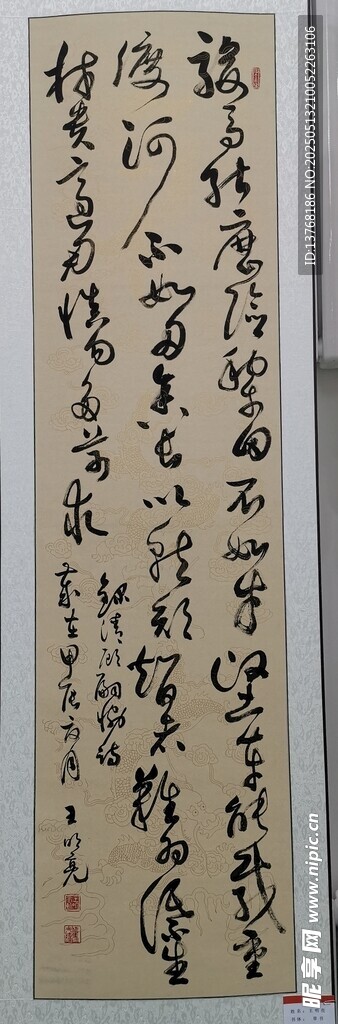 骏马能历险犁田不如牛坚车能载重
渡河不如舟舍长以就短智者难为谋生
材贵适用慎勿多苛求
录清顾嗣协诗
岁在甲辰六月王明亮
ID:13768186 NO:20250513210052263106
昵享网 www.nipic.cn